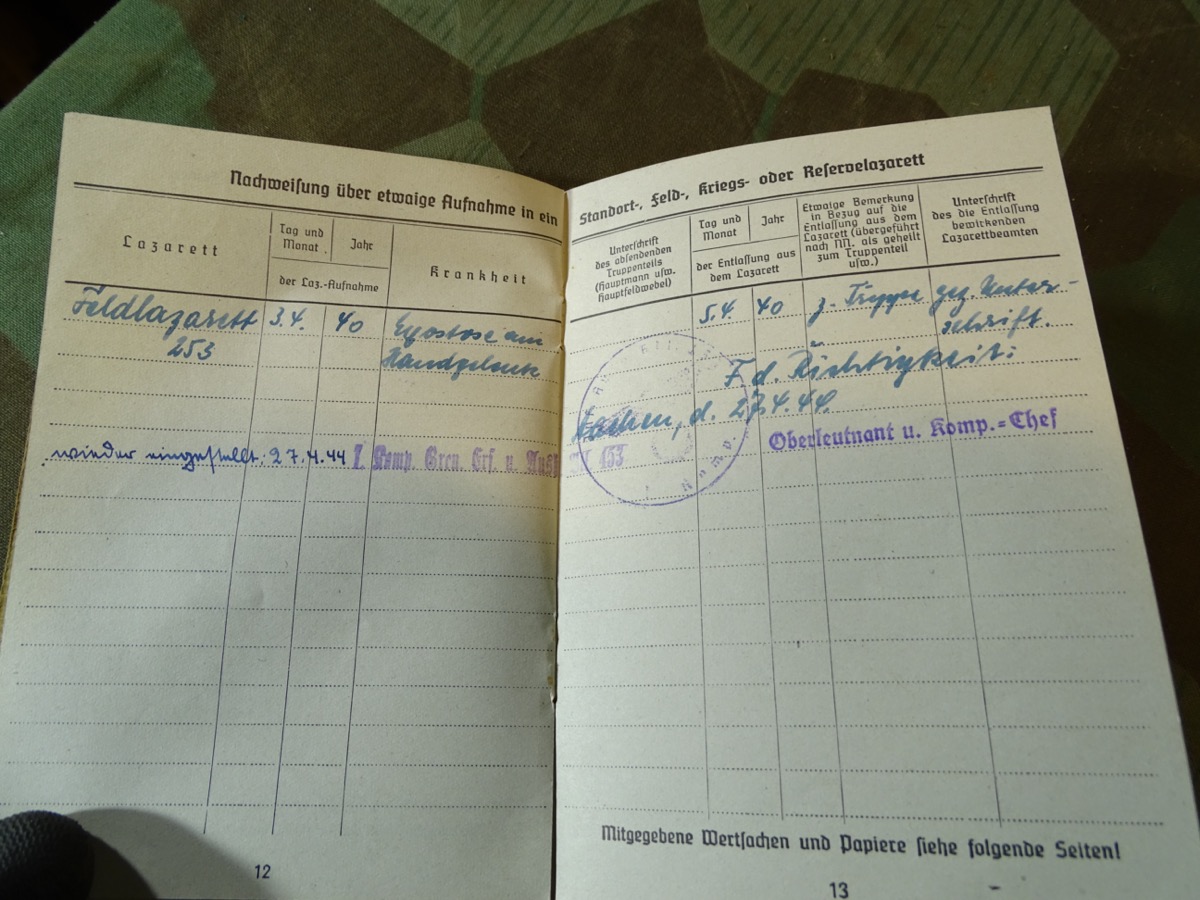 Nachweisung über etwaige Aufnahme in ein
Lazarett
Tag und Monat
Jahr
der Laz.-Aufnahme
Krankheit
Feldlazarett 3.4. 40 Exostose am
253 Handgelenk
wieder eingestellt. 27.4.44 Komp. Gren. Ers. u.
12
Standort-, Feld-, Kriegs- oder Reservelazarett
Unterschrift
des absendenden
Truppenteils
(Hauptmann usw.
Hauptfeldwebel)
Tag und Monat
Jahr
der Entlassung aus
dem Lazarett
Etwaige Bemerkung
in Bezug auf die
Entlassung aus dem
Lazarett (übergeführt
nach NN. als geheilt
zum Truppenteil
usw.)
Unterschrift
des die Entlassung
bewirkenden
Lazarettbeamten
5.4. 40 z. Truppe gez. Unter-
schrift.
F. d. Richtigkeit:
d. 27.4.44.
Oberleutnant u. Komp.=Chef
453
Mitgegebene Wertsachen und Papiere siehe folgende Seiten!
13